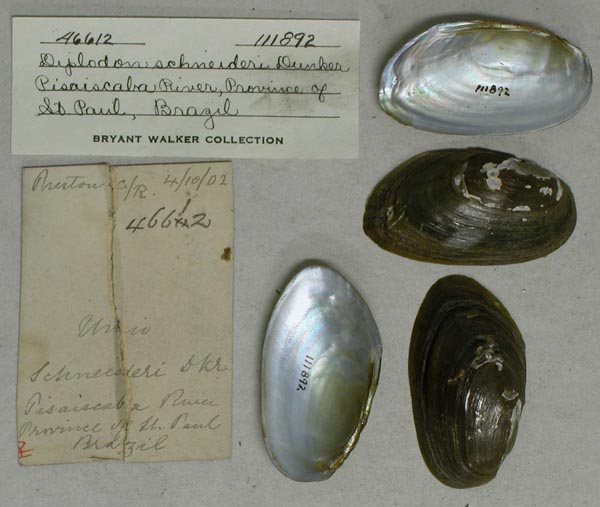 46612 111892
Diplodon schneideri Dunker
Pisaiscaba River, Province of
St Paul, Brazil
BRYANT WALKER COLLECTION
Preston c/R. 4/10/02
46612
Unio
Schneideri Dkr
Pisaiscaba River
Province of St. Paul
Brazil
111892
111892